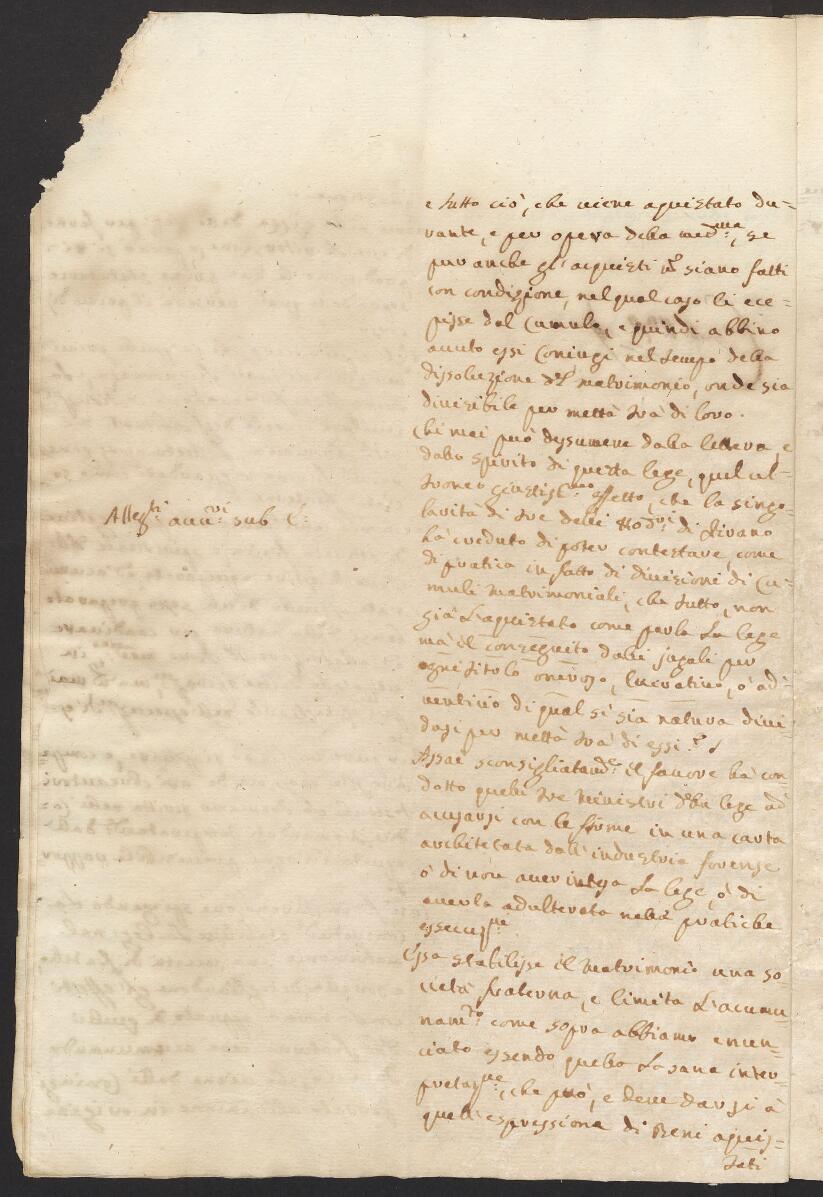 e tutto ciò, che viene aquistato du-
rante, e per opera della med.ma, se
pur anche gl'acquisti n.n siano fatti
con condizione, nel qual caso li ece-
pisse dal Cumulo, e quindi abbino
avuto essi Coniugi nel tempo della
dissoluzione d.l matrimonio, onde sia
divisibile per mettà trà di loro.
Chi mai può desumere dalla lettera, e
dallo spirito di questa lege, quel ul-
troneo effetto, che la singo-
larità di tre delli Hod.vi di Rivano
hà creduto di poter contestare, come
di pratica in fatto di divisioni di Cu-
muli Matrimoniali, che tutto, non
già l'aquistato come parla la lege
mà il conseguito dalli jugali per
ogni titolo oneroso, lucrativo, ò ad-
ventivo di qual si sia natura divi-
dasi per mettà trà di essi.
Assai sconsigliatam.e il favore hà con
dotto quelli tre Ministri d.lla lege ad
acusarsi con le firme in una carta
architetata dall'industria forense
ò di non aver intesa la lege, ò di
averla adulterata nelle pratiche
essecuz.ni
Essa stabilisse il Matrimonio una so-
cietà fraterna, e limita l'acumu-
nam.to come sopra abbiamo enun-
ciato essendo quella la sana inter-
pretaz.ne, che può, e deve darsi à
quell'espressione di Beni aquis-
tati
Alleg.ti sub C: